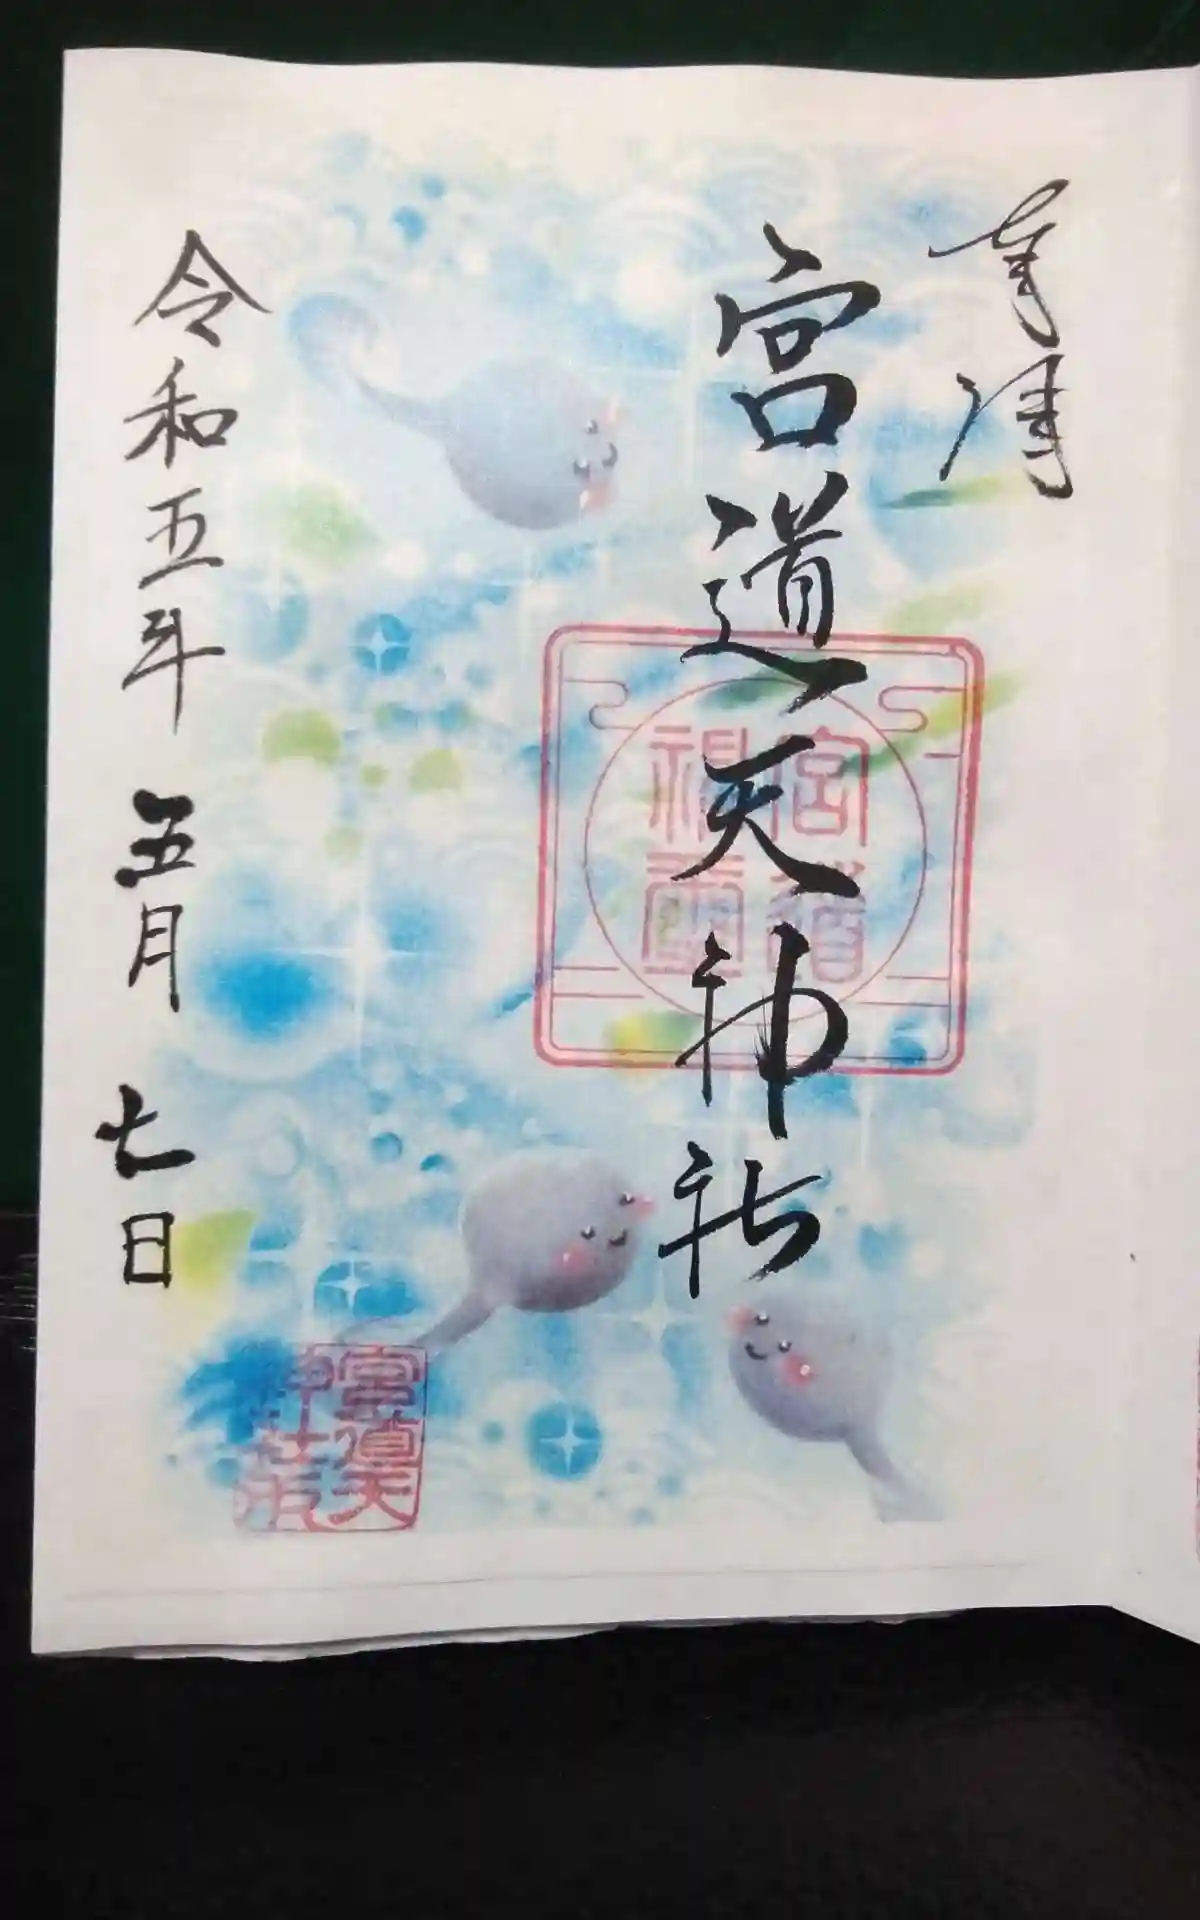 奉拝
宮道天神社
宮道
神璽
令和五年 五月 七日
宮道天
神社印